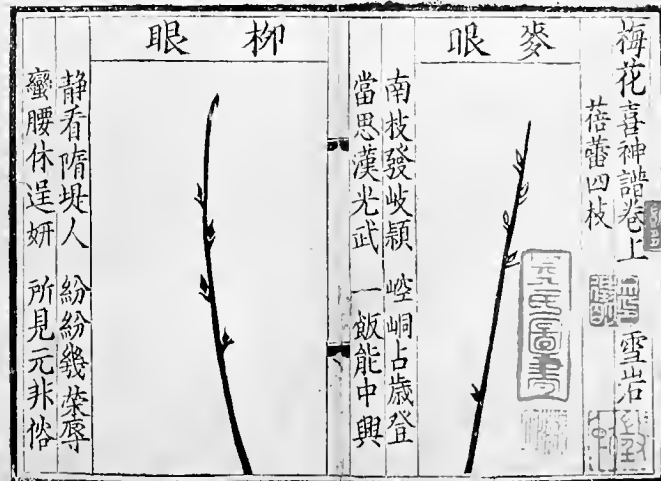 梅花喜神譜卷上 雪岩
蓓蕾四枝
麥眼
南枝發岐頴 崆峒占歲登
當思漢光武 一飯能中興
柳眼
靜看隋堤人 紛紛幾榮辱
蠻腰休逞妍 所見元非俗